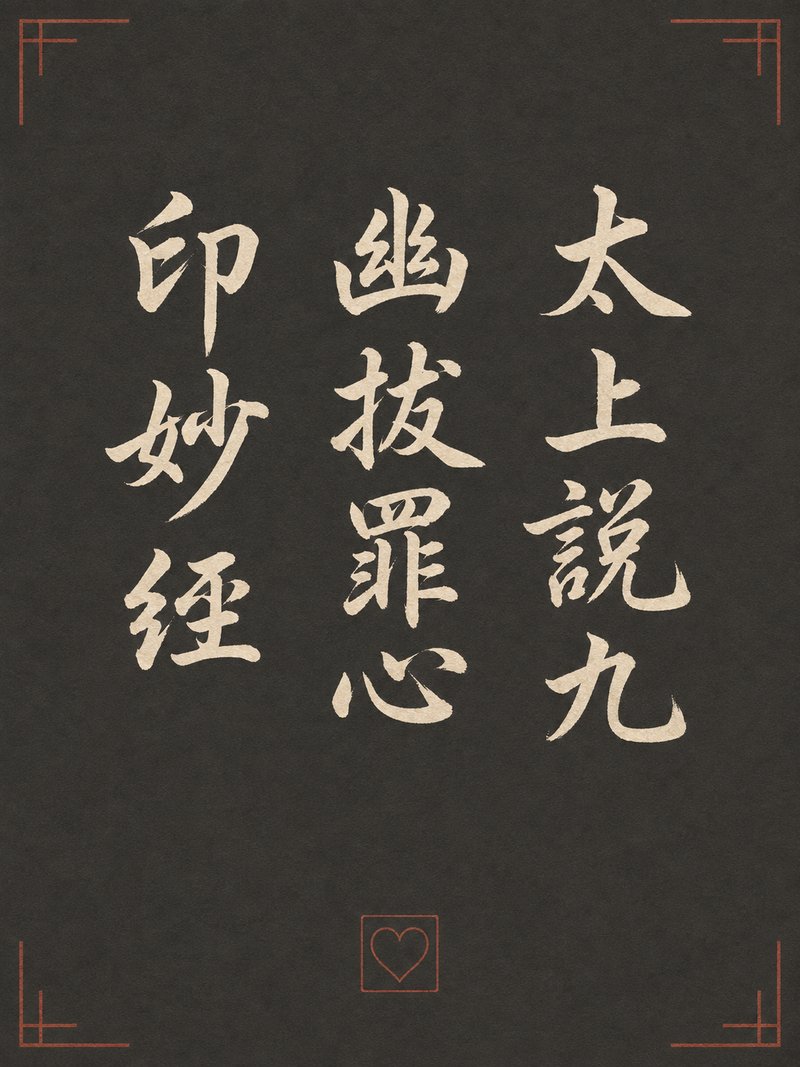 太上説九
幽拔罪心
印妙経